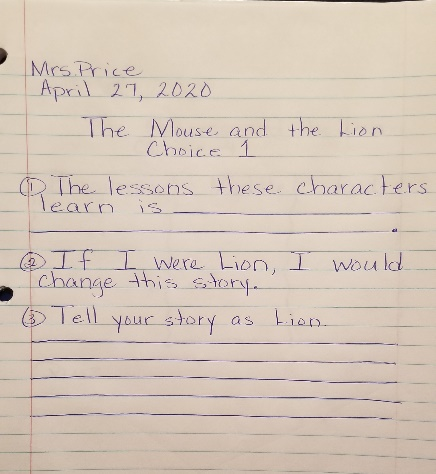 Mrs. Price
April 27, 2020
The Mouse and the Lion
Choice 1
① The lessons these characters
learn is
.
② If I were Lion, I would
change this story.
③ Tell your story as Lion.